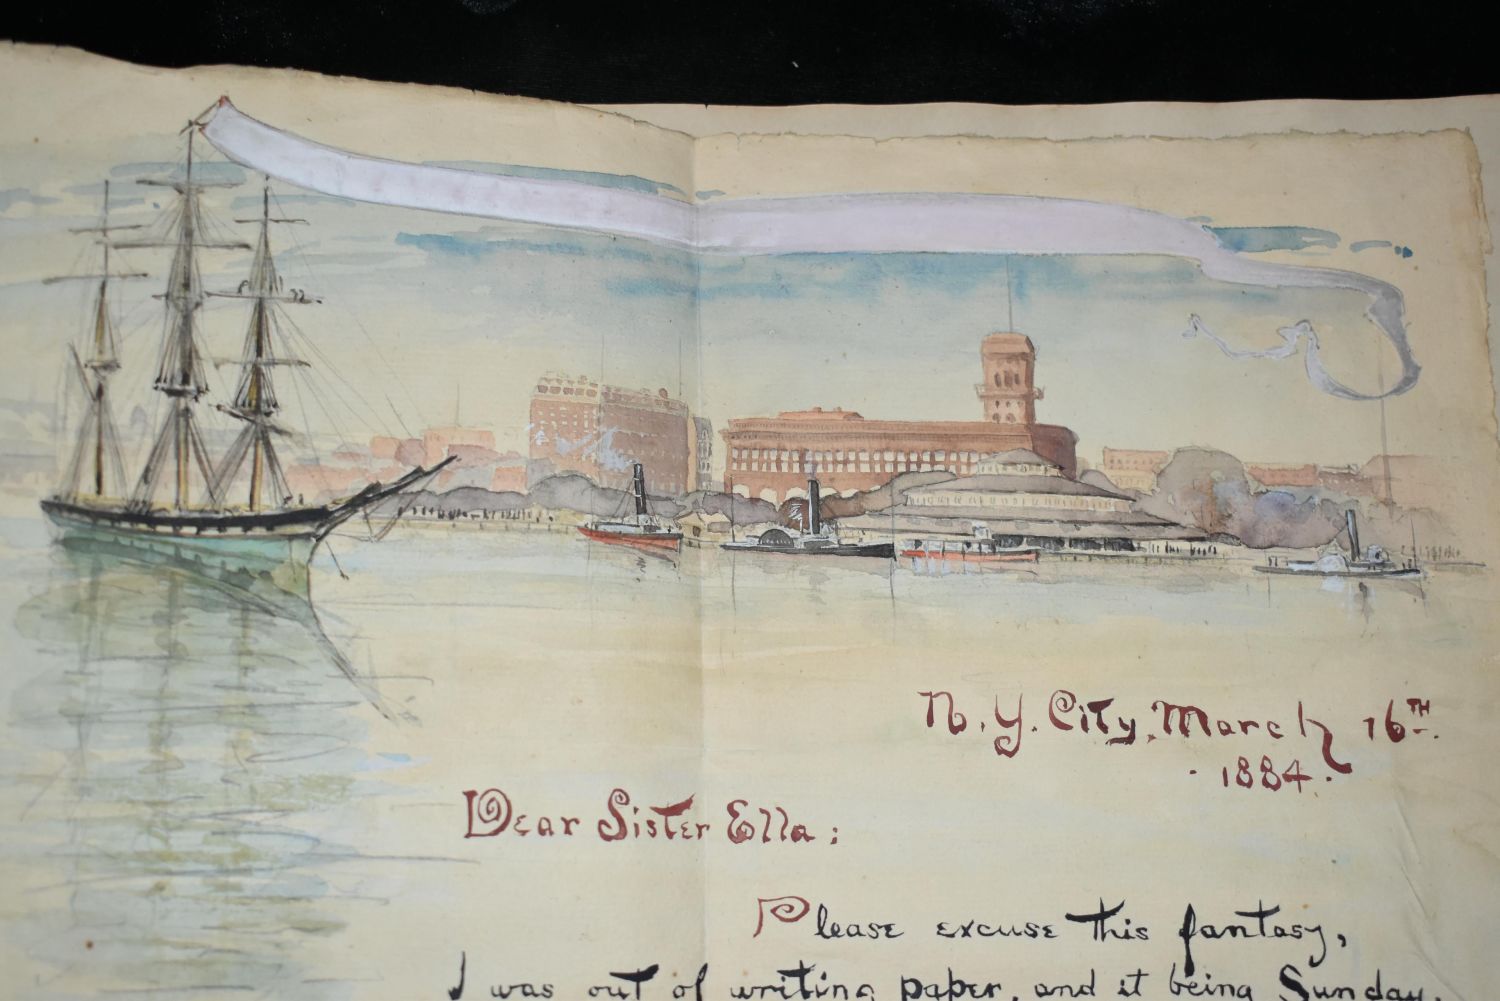 N. Y. City, March 16TH.
· 1884 ·
Dear Sister Ella:
Please excuse this fantasy,
I was out of writing paper, and it being Sunday,